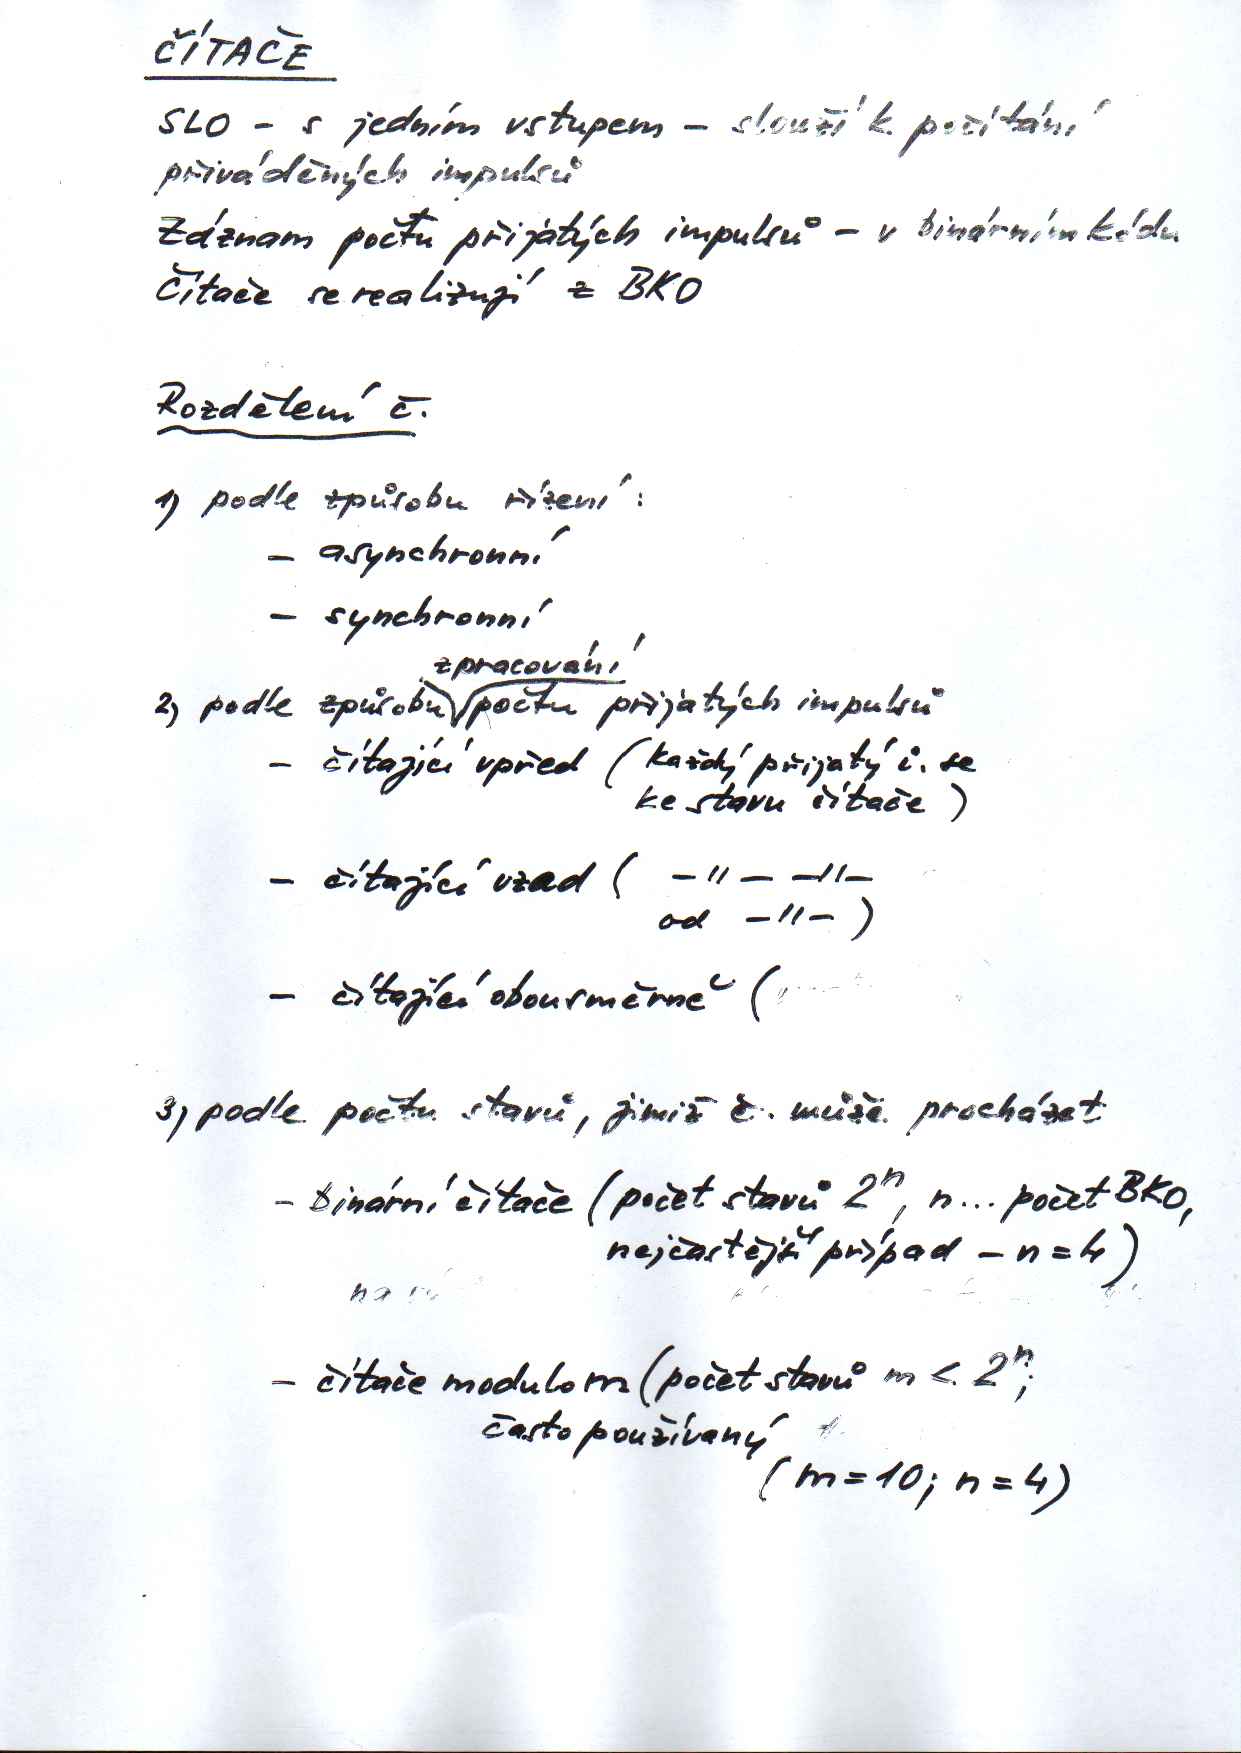 ČÍTAČE
SLO - s jedním vstupem - slouží k počítání
přiváděných impulsů
Záznam počtu přijatých impulsů - v binárním kódu
Čítače se realizují z BKO
Rozdělení č.
1) podle způsobu řízení:
- asynchronní
- synchronní
zpracování
2) podle způsobu počtu přijatých impulsů
- čítající vpřed (každý přijatý i. se
ke stavu čítače)
- čítající vzad ( -"- -"-
od -"- )
- čítající obousměrně (
3) podle počtu stavů, jimiž č. může procházet
- binární čítače (počet stavů 2ⁿ, n... počet BKO,
nejčastější případ - n=4)
- čítače modulo m (počet stavů m < 2ⁿ;
často používaný
(m=10; n=4)